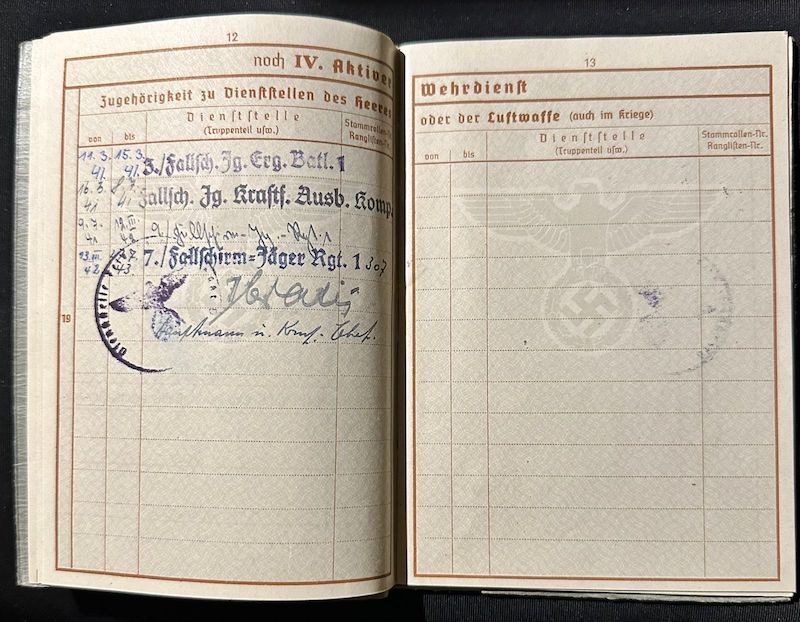 12
noch IV. Aktiver
Zugehörigkeit zu Dienststellen des Heeres
von
bis
Dienststelle
(Truppenteil usw.)
Stammrollen-Nr.
Ranglisten-Nr.
11.3. 15.3.
41. 41.
3./Fallsch. Jg. Erg. Batl. 1
16.3.
41
Fallsch. Jg. Kraftf. Ausb. Komp.
9.7. 12.III.
41 42
13.III.
42 43
7./Fallschirm-Jäger Rgt. 1 307
Hauptmann u. Komp. Chef.
Dienststelle
19
13
Wehrdienst
oder der Luftwaffe (auch im Kriege)
von
bis
Dienststelle
(Truppenteil usw.)
Stammrollen-Nr.
Ranglisten-Nr.